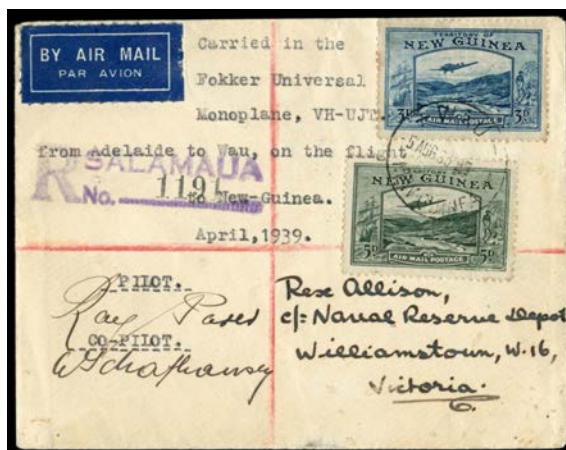 BY AIR MAIL
PAR AVION
Carried in the
Fokker Universal
Monoplane, VH-UJT.
from Adelaide to Wau, on the flight
to New-Guinea.
April, 1939.
R SALAMAUA
No. 1194
TERRITORY OF
NEW GUINEA
3D 3D
AIR MAIL POSTAGE
5 AUG 39
TERRITORY OF
NEW GUINEA
5D 5D
AIR MAIL POSTAGE
PILOT.
Ray Parer
CO-PILOT.
Rex Allison,
c/- Naval Reserve Depot
Williamstown, W.16,
Victoria.